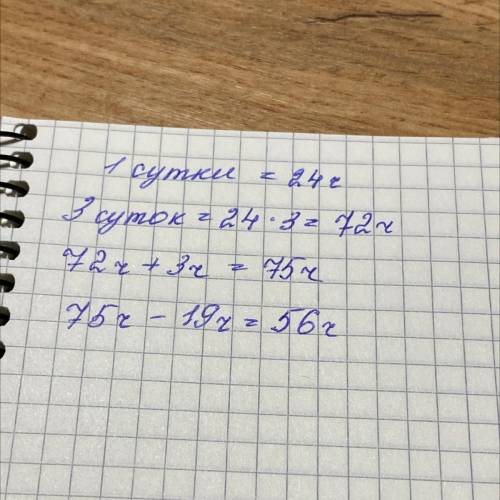 1 сутки = 24ч
3 суток = 24 · 3 = 72ч
72ч + 3ч = 75ч
75ч - 19ч = 56ч